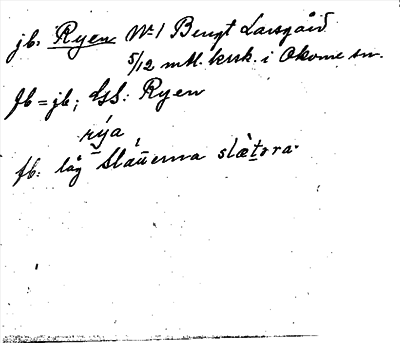 jb: Ryen № 1 Bengt Larsgård
5/12 mtl. krsk. i Okome sn.
Jb = jb; GS: Ryen
rýa
fb: låg Slaüerna slæ̀tɔra.